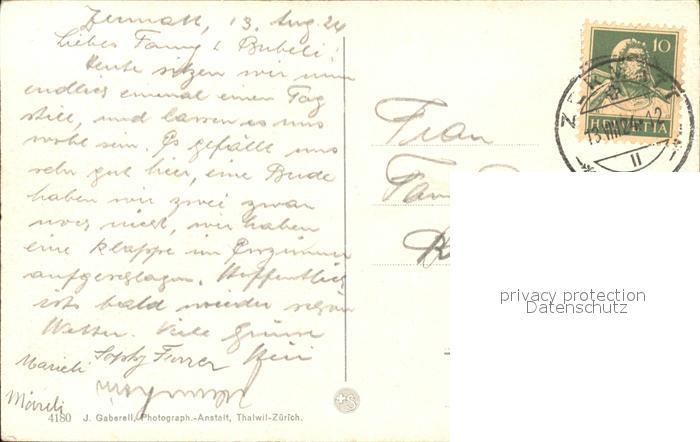 Zermatt, 13. Aug. 24
Liebes Fanny & Bubeli!
Heute sitzen wir nun
endlich einmal einen Tag
still, und lassen es uns
wohl sein. Es gefällt uns
sehr gut hier, eine Bude
haben wir zwei zwar
noch nicht, wir haben
eine Klappe im
aufgeschlagen. Hoffentlich
ists bald wieder schön
Wetter. Viele Grüsse
Marieli Sophy Furrer Heiri
4180 J. Gaberell, Photograph.-Anstalt, Thalwil-Zürich.
Frau
10
HELVETIA
13.VIII.24. 12
II
privacy protection
Datenschutz